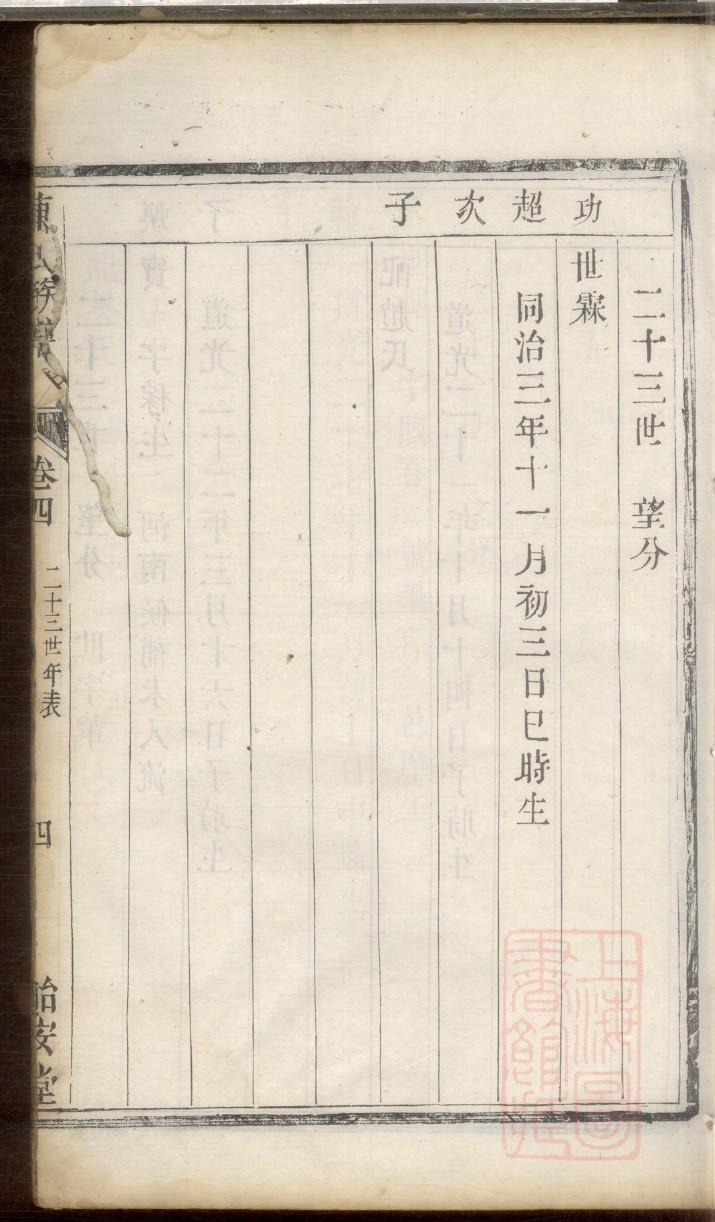 功超次子
二十三世　望分
世霖
同治三年十一月初三日巳時生
陳氏族譜
卷四
二十三世年表
四
怡安堂
上海圖書館藏